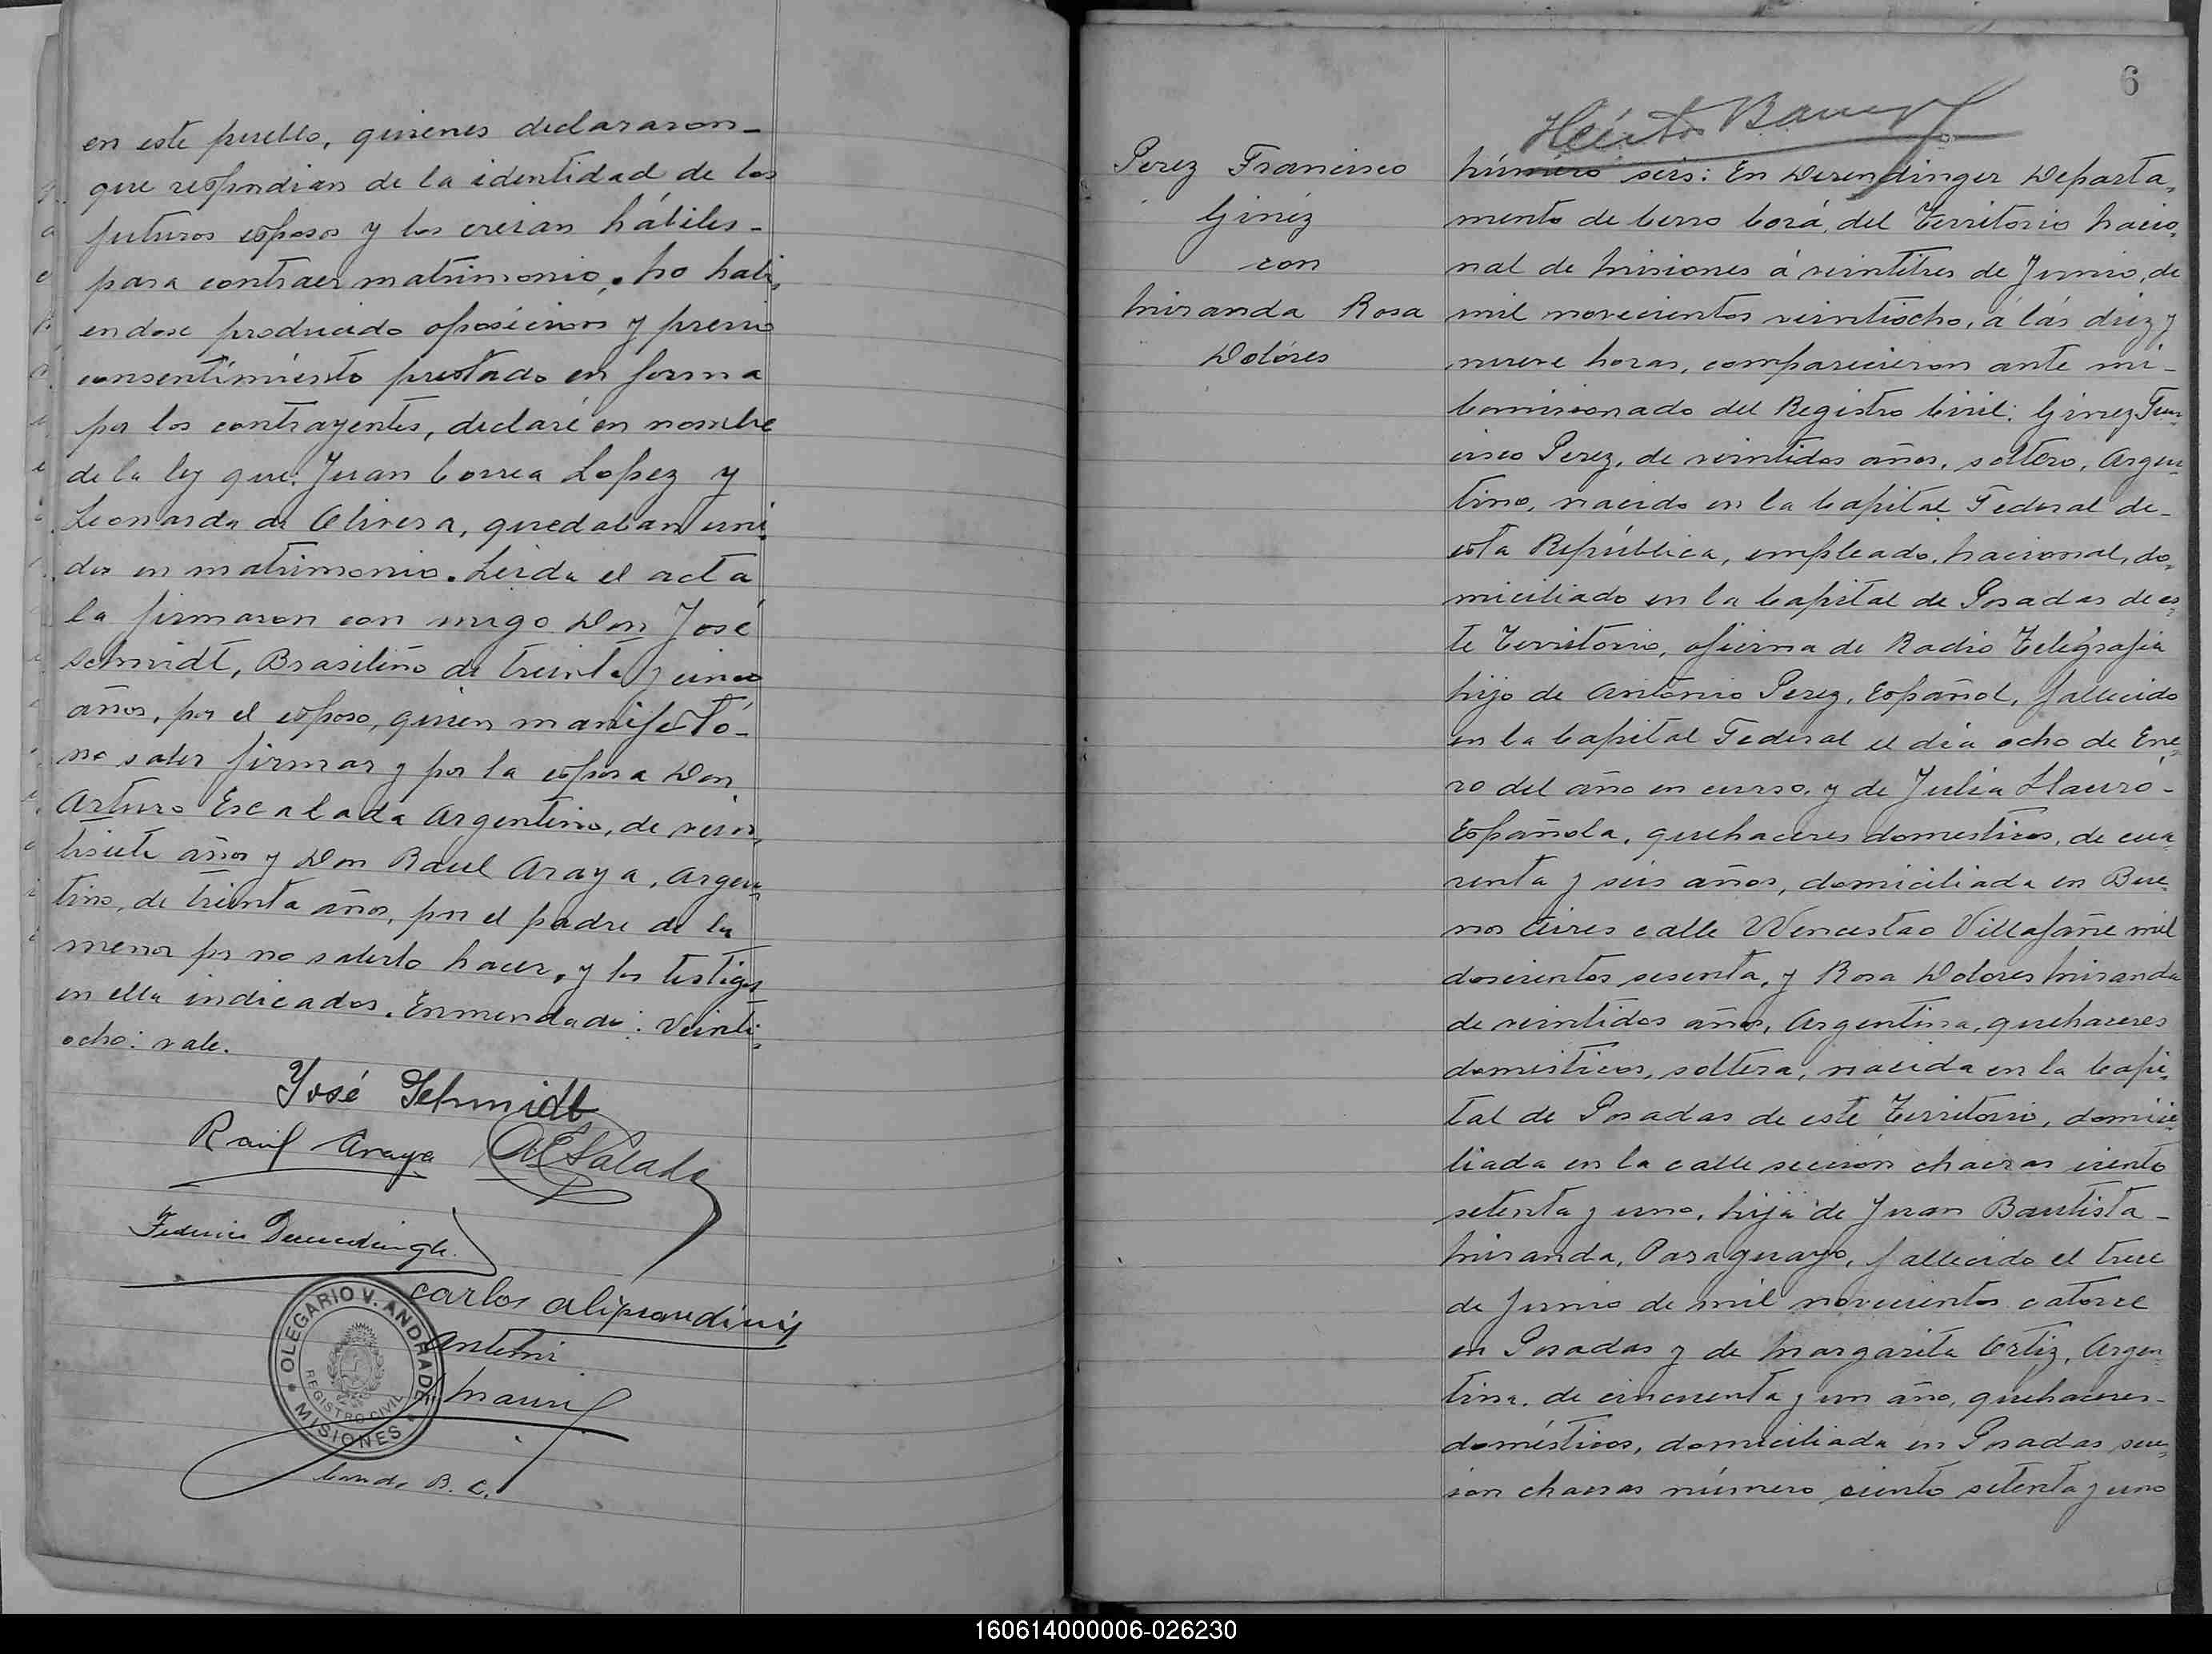 en este pueblo, quienes declararon-
que respondian de la identidad de los
futuros esposos y los creian hábiles-
para contraer matrimonio. No habi-
endose producido oposición y previo
consentimiento prestado en forma
por los contrayentes, declaré en nombre
de la ley que: Juan Correa Lopez y
Leonarda de Olivera, quedaban uni-
dos en matrimonio. Leida el acta
la firmaron con migo Don José
Schmidt, Brasileño de treinta y cinco
años, por el esposo, quien manifestó-
no saber firmar y por la esposa Don
Arturo Escalada Argentino, de vein-
tisiete años y Don Raul Araya, Argen-
tino, de treinta años, por el padre de la
menor por no saberlo hacer, y los testigos
en ella indicados. Enmendado: Veinti-
ocho: vale.
José Schmidt
Raúl Araya AEscalada
Federico
Carlos
Antonio
OLEGARIO V. ANDRADE
REGISTRO CIVIL
MISIONES
6
Héctor
Perez Francisco
Ginéz
con
Miranda Rosa
Dolóres
Número seis: En Derendinger Departa-
mento de Cerro Corá, del Territorio Nacio-
nal de Misiones á veintitres de Junio, de
mil novecientos veintiocho, á lás diez y
nueve horas, comparecieron ante mi-
Comisionado del Registro Civil: Ginez Fran-
cisco Perez, de veintidos años, soltero, Argen-
tino, nacido en la Capital Federal de-
esta República, empleado, Nacional, do-
miciliado en la Capital de Posadas de es-
te Territorio, oficina de Radio Telégrafia
hijo de Antonio Perez, Español, fallecido
en la Capital Federal el dia ocho de Ene-
ro del año en curso, y de Julia Llauró-
Española, quehaceres domesticos, de cua-
renta y seis años, domiciliada en Bue-
nos Aires calle Wenceslao Villafañe mil
doscientos sesenta, y Rosa Dolores Miranda
de veintidos años, Argentina, quehaceres
domesticos, soltera, nacida en la Capi-
tal de Posadas de este Territorio, domici-
liada en la calle seccion chacras ciento
setenta y uno, hija de Juan Bautista-
Miranda, Paraguayo, fallecido el trece
de Junio de mil novecientos catorce
en Posadas y de Margarita Ortiz, Argen-
tina, de cincuenta y un año, quehaceres-
domésticos, domiciliada en Posadas sec-
cion chacras número ciento setenta y uno
160614000006-026230